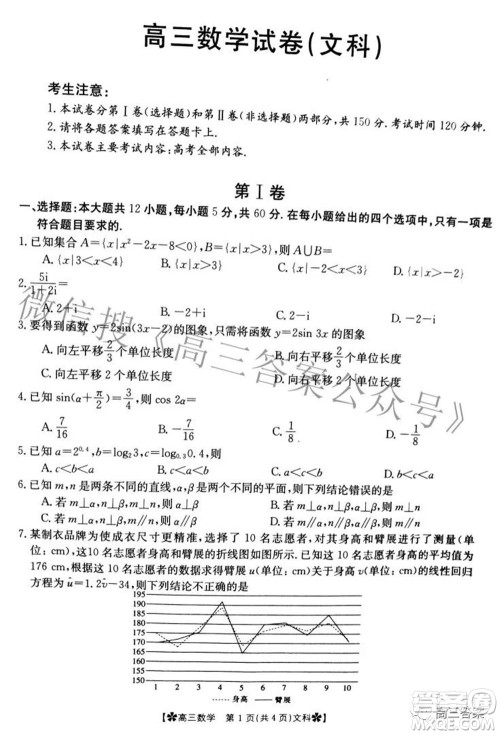 高三数学试卷(文科)
考生注意:
1. 本试卷分第Ⅰ卷(选择题)和第Ⅱ卷(非选择题)两部分,共 150 分. 考试时间 120 分钟.
2. 请将各题答案填写在答题卡上.
3. 本试卷主要考试内容:高考全部内容.
第Ⅰ卷
一、选择题:本大题共 12 小题,每小题 5 分,共 60 分. 在每小题给出的四个选项中,只有一项是
符合题目要求的.
1. 已知集合 A={x|x²-2x-8<0},B={x|3<x<5},则 A∪B=
A. {x|3<x<4} B. {x|-2<x<5} C. {x|4<x<5} D. {x|-2<x<3}
2. 5i/(1+2i)=
A. 2+i B. -2+i C. 2-i D. -2-i
3. 要得到函数 y=2sin(3x-2)的图象,只需将函数 y=2sin 3x 的图象
A. 向左平移2/3个单位长度 B. 向右平移2/3个单位长度
C. 向左平移2个单位长度 D. 向右平移2个单位长度
D. -1/8
5. 已知 a=2^0.4,b=log₂3,c=log₀.₃0.4,则
A. c<b<a B. c<a<b C. a<c<b D. b<c<a
6. 已知 m,n 是两条不同的直线,α,β 是两个不同的平面,则下列结论错误的是
7. 某制衣品牌为使成衣尺寸更精准,选择了 10 名志愿者,对其身高和臂展进行了测量(单
位:cm),这 10 名志愿者身高和臂展的折线图如图所示. 已知这 10 名志愿者身高的平均值为
176 cm,根据这 10 名志愿者的数据求得臂展 u(单位:cm)关于身高 v(单位:cm)的线性回归
方程为 û=1.2v-34,则下列结论不正确的是
195
190
185
180
175
170
165
160
155
150
145
1 2 3 4 5 6 7 8 9 10
身高 臂展
【高三数学 第 1 页(共 4 页)文科】
微信搜《高三答案公众号》
高三答案